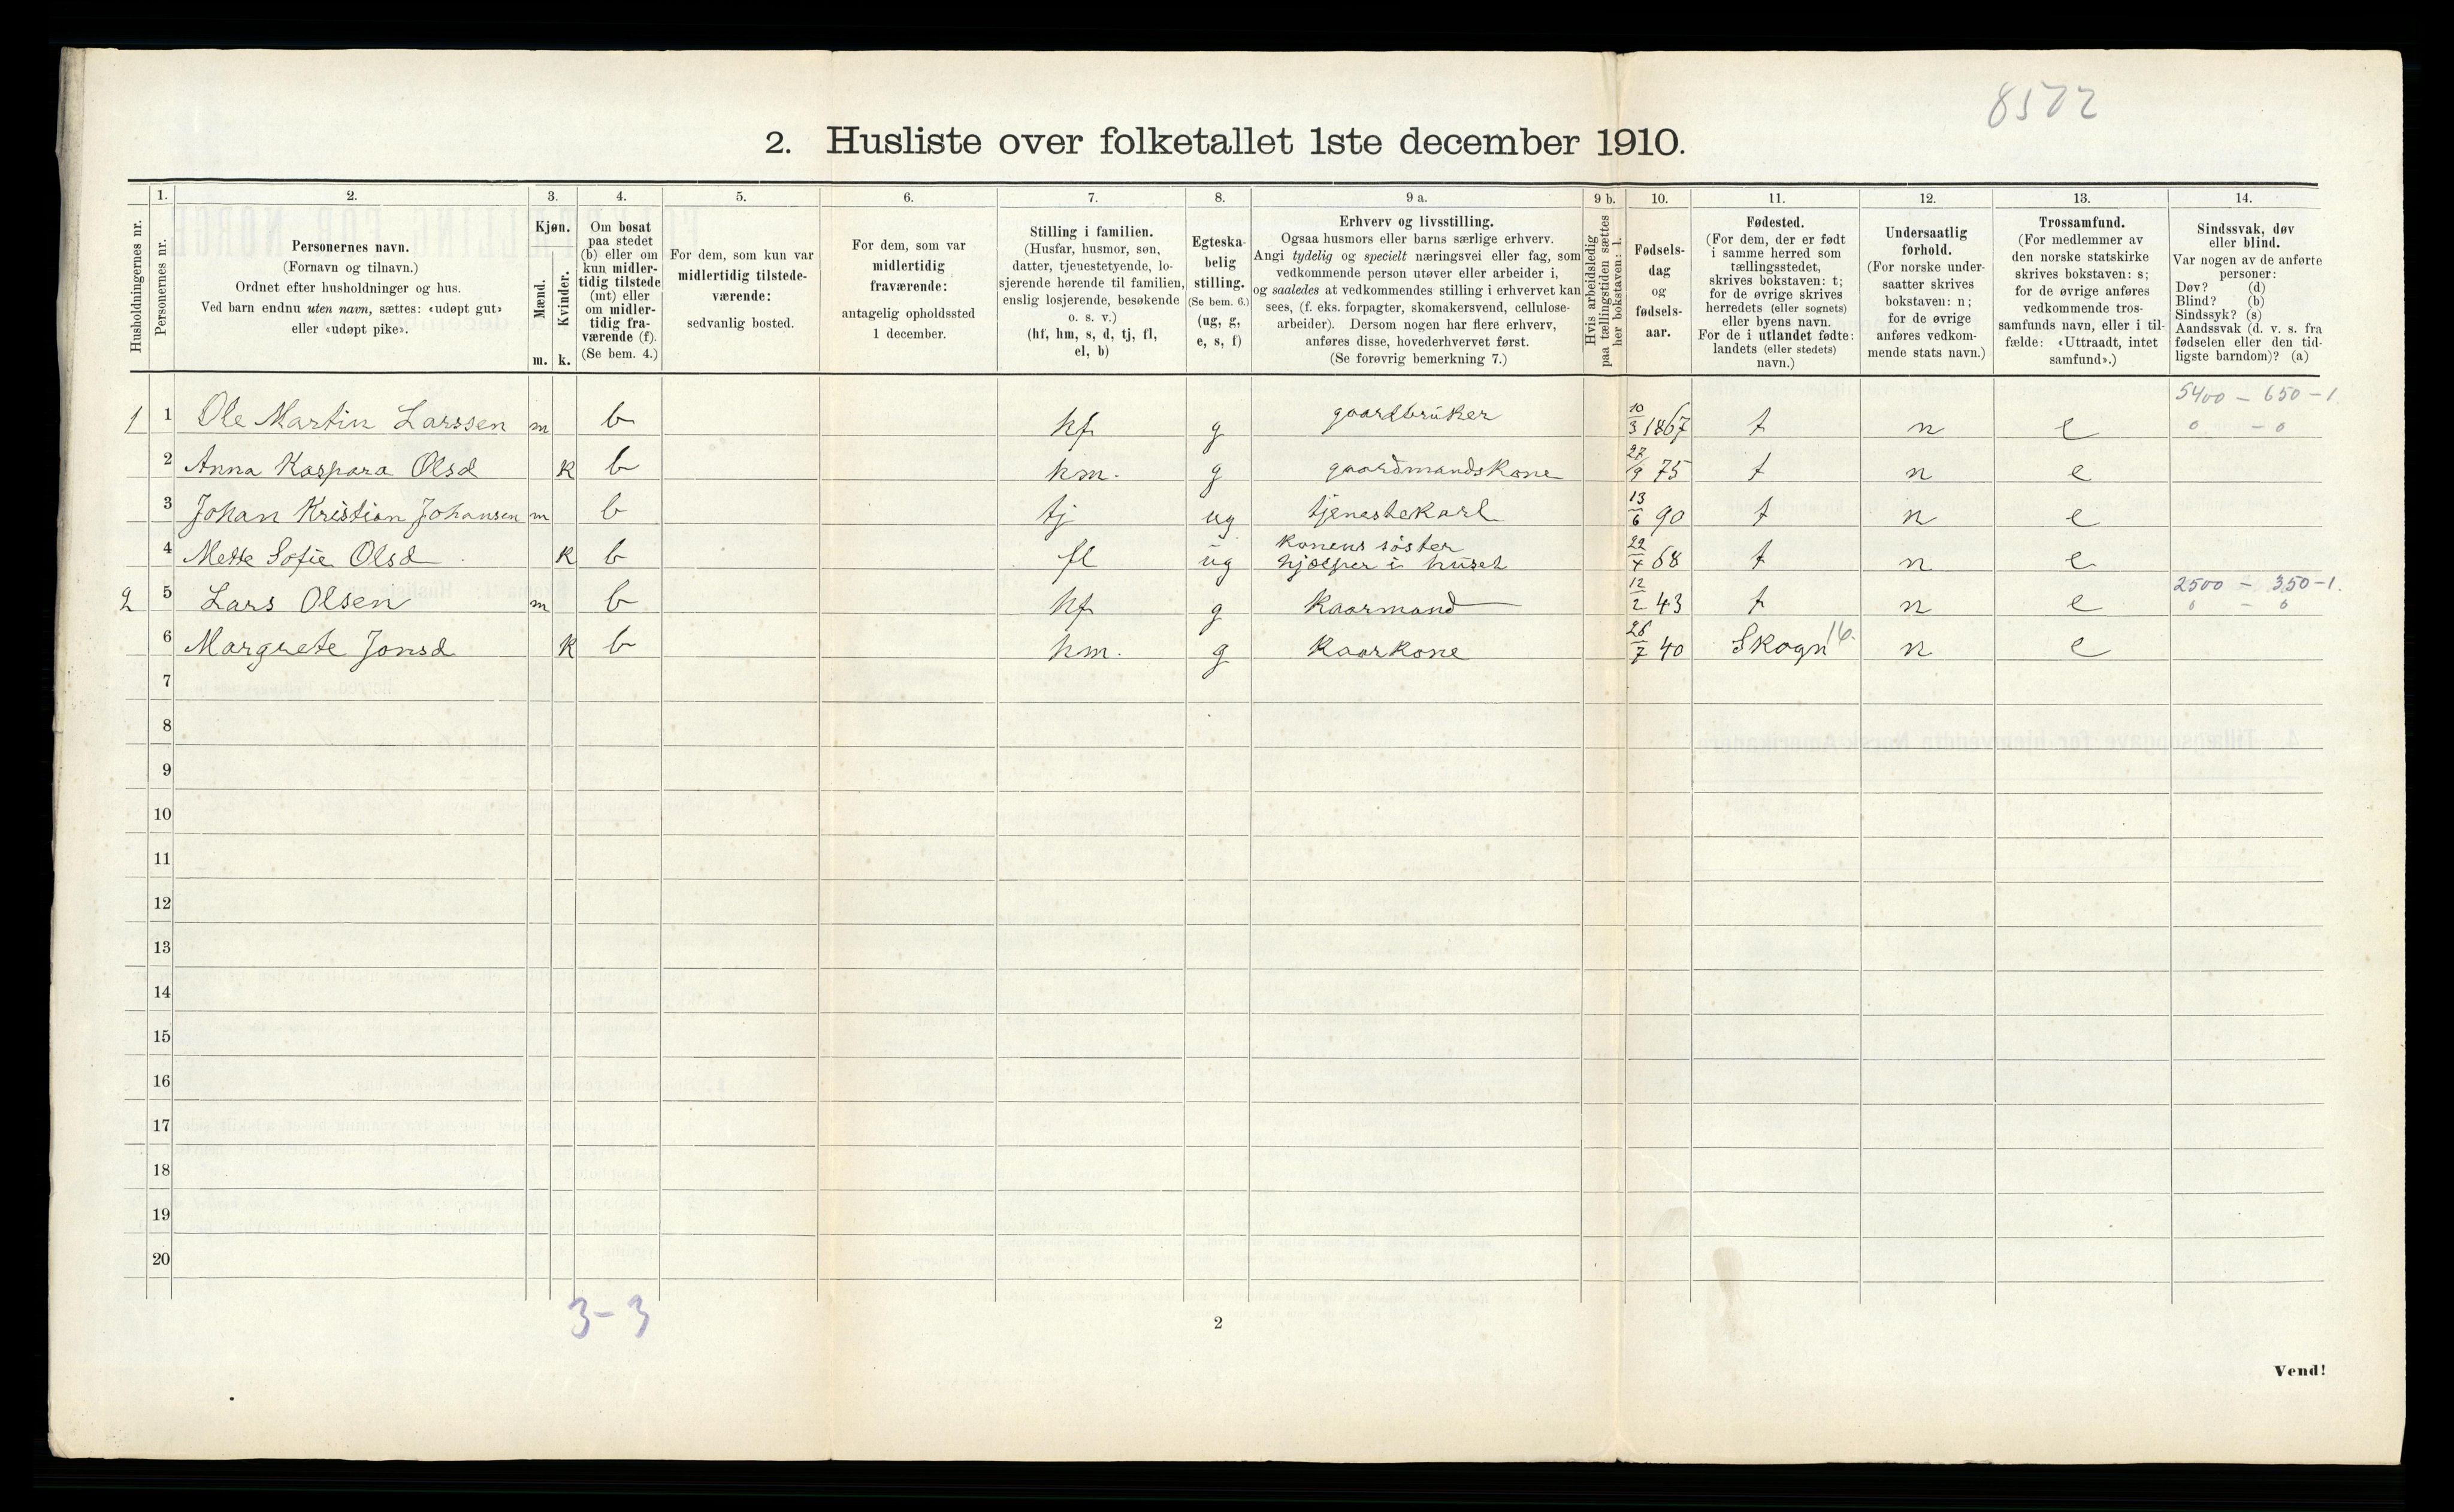 8572
2. Husliste over folketallet 1ste december 1910.
1. 2. 3. 4. 5. 6. 7. 8. 9 a. 9 b. 10. 11. 12. 13. 14.
Husholdningernes nr.
Personernes nr.
Personernes navn.
(Fornavn og tilnavn.)
Ordnet efter husholdninger og hus.
Ved barn endnu uten navn, sættes: «udøpt gut»
eller «udøpt pike».
Kjøn.
Mænd.
Kvinder.
m. k.
Om bosat
paa stedet
(b) eller om
kun midler-
tidig tilstede
(mt) eller
om midler-
tidig fra-
værende (f).
(Se bem. 4.)
For dem, som kun var
midlertidig tilstede-
værende:
sedvanlig bosted.
For dem, som var
midlertidig
fraværende:
antagelig opholdssted
1 december.
Stilling i familien.
(Husfar, husmor, søn,
datter, tjenestetyende, lo-
sjerende hørende til familien,
enslig losjerende, besøkende
o. s. v.)
(hf, hm, s, d, tj, fl,
el, b)
Egteska-
belig
stilling.
(Se bem. 6.)
(ug, g,
e, s, f)
Erhverv og livsstilling.
Ogsaa husmors eller barns særlige erhverv.
Angi tydelig og specielt næringsvei eller fag, som
vedkommende person utøver eller arbeider i,
og saaledes at vedkommendes stilling i erhvervet kan
sees, (f. eks. forpagter, skomakersvend, cellulose-
arbeider). Dersom nogen har flere erhverv,
anføres disse, hovederhvervet først.
(Se forøvrig bemerkning 7.)
Hvis arbeidsledig
paa tællingstiden sættes
her bokstaven: l.
Fødsels-
dag
og
fødsels-
aar.
Fødested.
(For dem, der er født
i samme herred som
tællingsstedet,
skrives bokstaven: t;
for de øvrige skrives
herredets (eller sognets)
eller byens navn.
For de i utlandet fødte:
landets (eller stedets)
navn.)
Undersaatlig
forhold.
(For norske under-
saatter skrives
bokstaven: n;
for de øvrige
anføres vedkom-
mende stats navn.)
Trossamfund.
(For medlemmer av
den norske statskirke
skrives bokstaven: s;
for de øvrige anføres
vedkommende tros-
samfunds navn, eller i til-
fælde: «Uttraadt, intet
samfund».)
Sindssvak, døv
eller blind.
Var nogen av de anførte
personer:
Døv? (d)
Blind? (b)
Sindssyk? (s)
Aandssvak (d. v. s. fra
fødselen eller den tid-
ligste barndom)? (a)
5400 - 650-1
1 1 Ole Martin Larssen m b hf g gaardbruker 10/3 1867 t n e 0 - 0
2 Anna Kaspara Olsd k b hm. g gaardmandskone 27/9 75 t n e
3 Johan Kristian Johansen m b tj ug tjenestekarl 13/6 90 t n e
4 Mette Sofie Olsd k b fl ug konens søster hjælper i huset 22/4 68 t n e
2500 - 350-1.
2 5 Lars Olsen m b hf g Kaarmand 12/2 43 t n e 0 - 0
6 Margrete Jonsd k b hm. g Kaarkone 26/7 40 Skogn 16. n e
7
8
9
10
11
12
13
14
15
16
17
18
19
20
3-3
2
Vend!